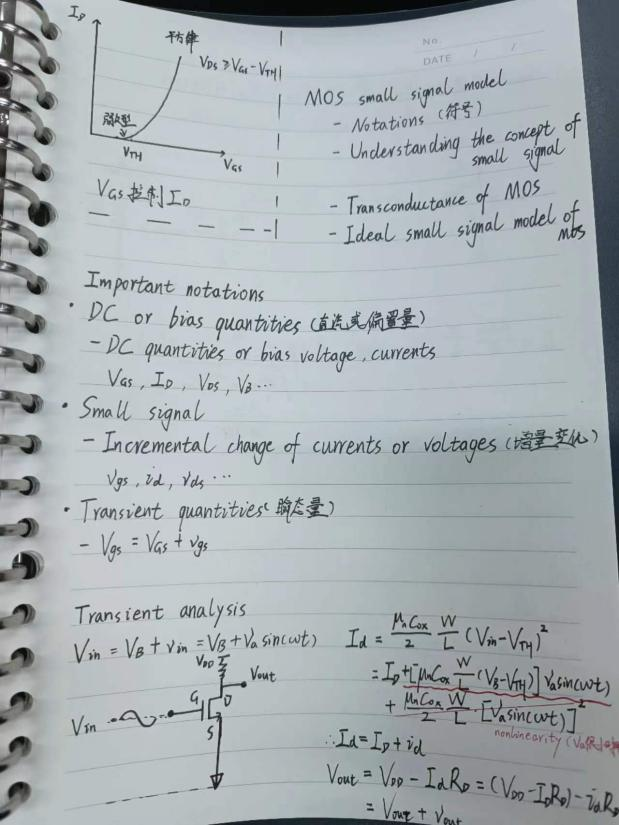 I_D
平方律
V_DS ≥ V_GS - V_TH
V_TH
V_GS
V_GS 控制 I_D
No.
DATE / /
MOS small signal model
- Notations (符号)
- Understanding the concept of
small signal
- Transconductance of MOS
- Ideal small signal model of
MOS
Important notations
· DC or bias quantities (直流或偏置量)
- DC quantities or bias voltage, currents
V_GS, I_D, V_DS, V_B ...
· Small signal
- Incremental change of currents or voltages (增量变化)
v_gs, i_d, v_ds ...
· Transient quantities (瞬态量)
- V_gs = V_GS + v_gs
Transient analysis
V_in = V_B + v_in = V_B + V_a sin(ωt)
V_DD
Vout
G
D
S
Vin
I_d = μ_n C_ox / 2 W/L (V_in - V_TH)^2
= I_D + [μ_n C_ox W/L (V_B - V_TH)] V_a sin(ωt)
+ μ_n C_ox / 2 W/L [V_a sin(ωt)]^2
nonlinearity (Va很小
∴ I_d = I_D + i_d
Vout = V_DD - I_d R_D = (V_DD - I_D R_D) - i_d R_D
= Vout + vout